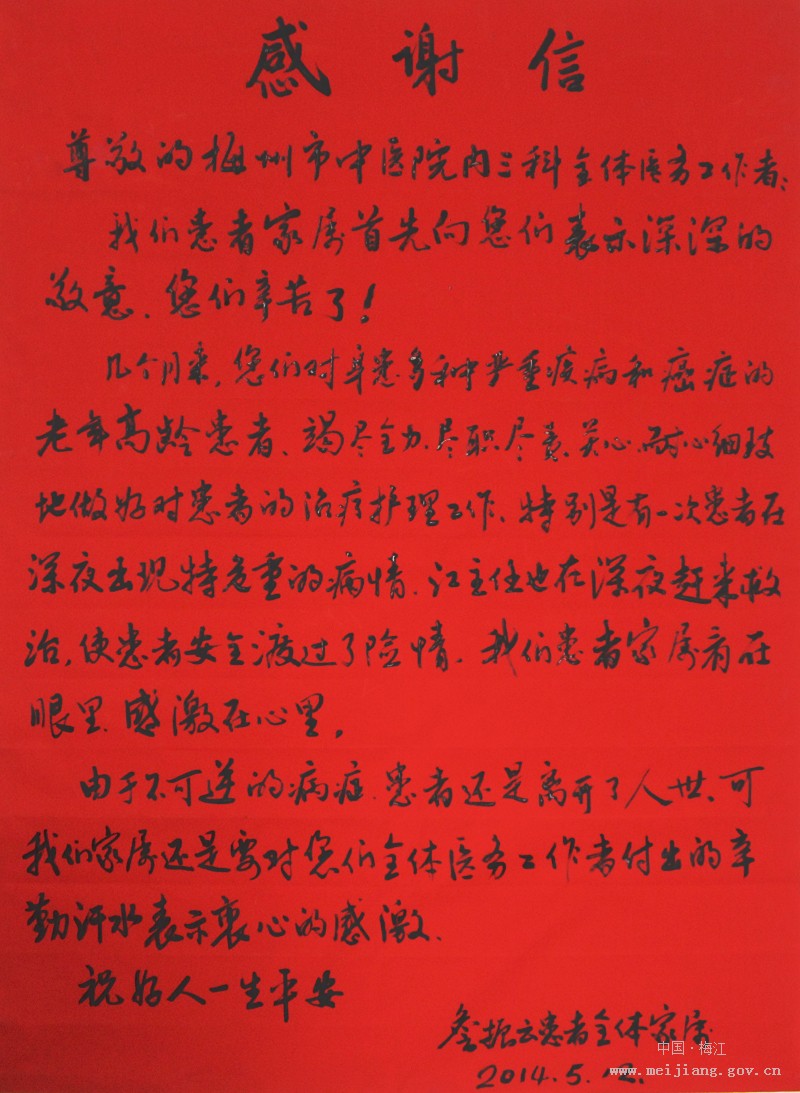 感谢信
尊敬的梅州市中医院内三科全体医务工作者:
我们患者家属首先向您们表示深深的
敬意、您们辛苦了!
几个月来,您们对身患多种严重疾病和癌症的
老年高龄患者、竭尽全力、尽职尽责、关心、耐心细致
地做好对患者的治疗护理工作、特别是有一次患者在
深夜出现特危重的病情、江主任也在深夜赶来救
治,使患者安全渡过了险情、我们患者家属看在
眼里、感激在心里。
由于不可逆的病症、患者还是离开了人世、可
我们家属还是要对您们全体医务工作者付出的辛
勤汗水表示衷心的感激、
祝好人一生平安
詹振云患者全体家属
2014.5.12.
中国·梅江
www.meijiang.gov.cn